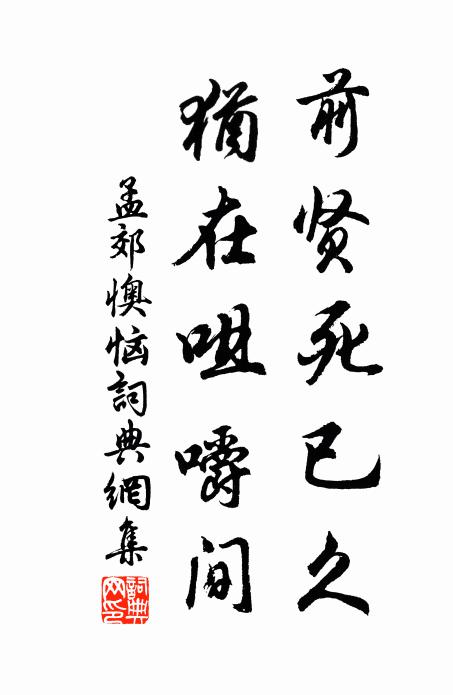 前贤死已久
犹在咀嚼间
孟郊懊恼詞典網集
詞典
网印